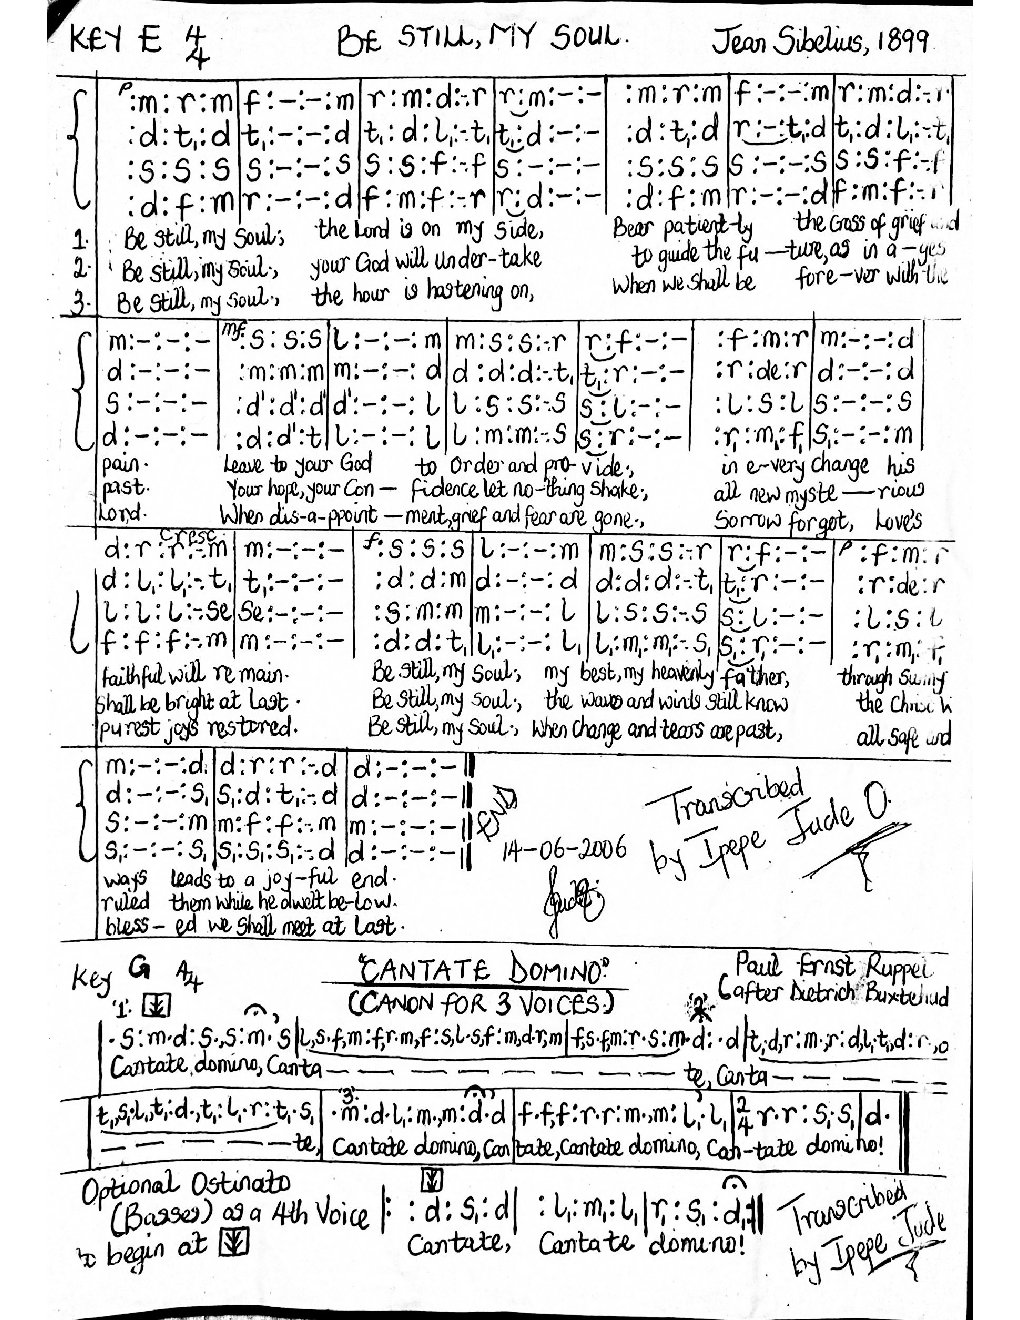 KEY E 4/4 BE STILL, MY SOUL. Jean Sibelius, 1899
p :m:r:m|f:-:-:m|r:m:d:-r|r:m:-:-| :m:r:m|f:-:-:m|r:m:d:-r
:d:t,:d|t,:-:-:d|t,:d:l,:-t,|t,:d:-:-| :d:t,:d|r:-:t,:d|t,:d:l,:-t,
:s:s:s|s:-:-:s|s:s:f:-f|s:-:-:-| :s:s:s|s:-:-:s|s:s:f:-f
:d:f:m|r:-:-:d|f:m:f:-r|r:d:-:-| :d:f:m|r:-:-:d|f:m:f:-r
1. Be still, my Soul; the Lord is on my side, Bear patient-ly the cross of grief and
2. Be still, my Soul; your God will under-take to guide the fu-ture, as in a-ges
3. Be still, my Soul; the hour is hastening on, When we shall be fore-ver with the
m:-:-:-|mf :s:s:s|l:-:-:m|m:s:s:-r|r:f:-:-| :f:m:r|m:-:-:d
d:-:-:-| :m:m:m|m:-:-:d|d:d:d:-t,|t,:r:-:-| :r:de:r|d:-:-:d
s:-:-:-| :d':d':d'|d':-:-:l|l:s:s:-s|s:l:-:-| :l:s:l|s:-:-:s
d:-:-:-| :d:d':t|l:-:-:l|l:m:m:-s|s:r:-:-| :r,:m,:f,|s,:-:-:m
pain. Leave to your God to order and pro-vide; in e-very change his
past. Your hope, your Con-fidence let no-thing shake; all new myste-rious
Lord. When dis-a-ppoint-ment, grief and fear are gone, Sorrow forgot, Love's
Cresc.
d:r:r:-m|m:-:-:-|f :s:s:s|l:-:-:m|m:s:s:-r|r:f:-:-|p :f:m:r
d:l,:l,:-t,|t,:-:-:-| :d:d:m|d:-:-:d|d:d:d:-t,|t,:r:-:-| :r:de:r
l:l:l:-se|se:-:-:-| :s:m:m|m:-:-:l|l:s:s:-s|s:l:-:-| :l:s:l
f:f:f:-m|m:-:-:-| :d:d:t,|l,:-:-:l,|l,:m,:m,:-s,|s,:r,:-:-| :r,:m,:f,
faithful will re main. Be still, my Soul; my best, my heavenly father, through
Shall be bright at last. Be still, my Soul; the waves and winds still know the
purest joys restored. Be still, my Soul; When change and tears are past, all safe and
m:-:-:d,|d:r:r:-d|d:-:-:-||
d:-:-:s,|s,:d:t,:-d|d:-:-:-||
s:-:-:m|m:f:f:-m|m:-:-:-||
s,:-:-:s,|s,:s,:s,:-d|d:-:-:-||
END
14-06-2006
Jude
Transcribed
by Ipepe Jude O.
ways leads to a joy-ful end.
ruled them while he dwelt be-low.
bless-ed we shall meet at last.
Key G 4/4 "CANTATE DOMINO" Paul Ernst Ruppel
(CANON FOR 3 VOICES) (after Dietrich Buxtehud
Cantate domino, Canta- - - - te, Canta- - -
- - - - te, Cantate domino, Cantate, Cantate domino, Can-tate domino!
Optional Ostinato
(Basses) as a 4th Voice |: :d:s,:d| :l,:m,:l,|r,:s,:d,||
to begin at Cantate, Cantate domino!
Transcribed
by Ipepe Jude